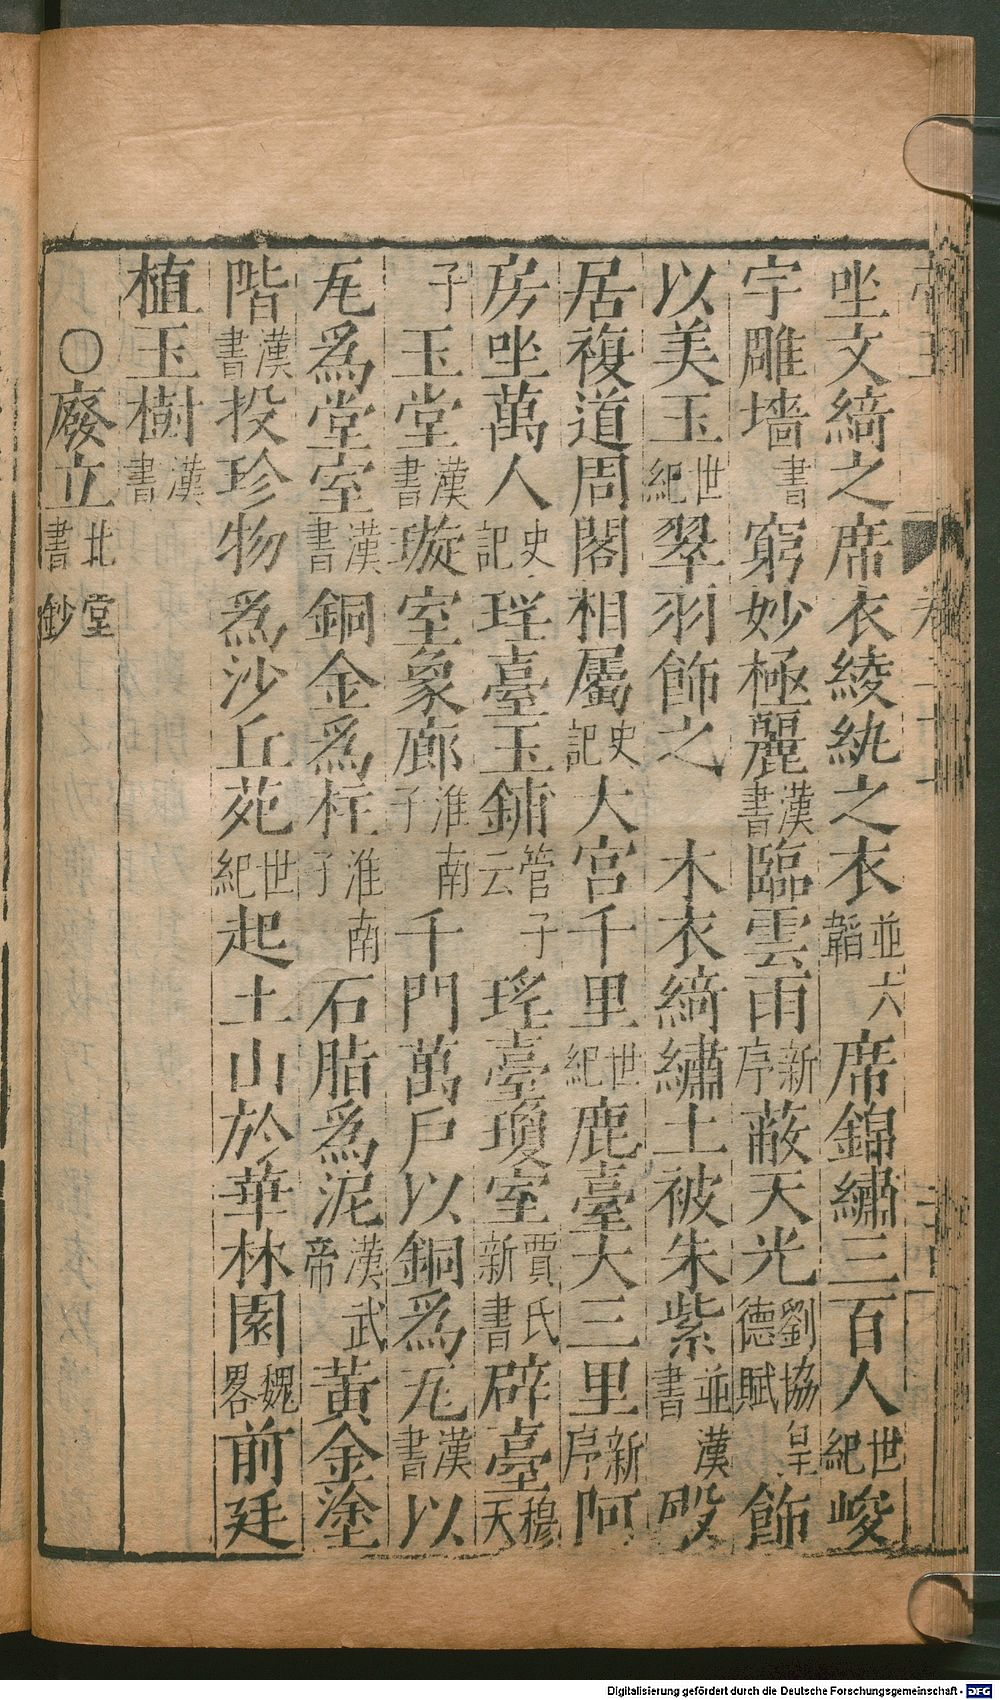 坐文綺之席衣綾紈之衣並六韜席錦繡三百人世紀峻
宇雕墻書窮妙極麗漢書臨雲雨新序蔽天光劉協皇德賦飾
以美玉世紀翠羽飾之木衣綺繡土被朱紫並漢書殿
居複道周閣相屬史記大宮千里世紀鹿臺大三里新序阿
房坐萬人史記瑶臺玉鋪管子云瑤臺瓊室賈氏新書辟臺穆天
子玉堂漢書璇室象廊淮南子千門萬戶以銅為瓦漢書以
瓦為堂室漢書銅金為柱淮南子石脂為泥漢武帝黃金塗
階漢書投珍物為沙丘苑世紀起土山於華林園魏畧前廷
植玉樹漢書
○廢立北堂書鈔
Digitalisierung gefördert durch die Deutsche Forschungsgemeinschaft - DFG